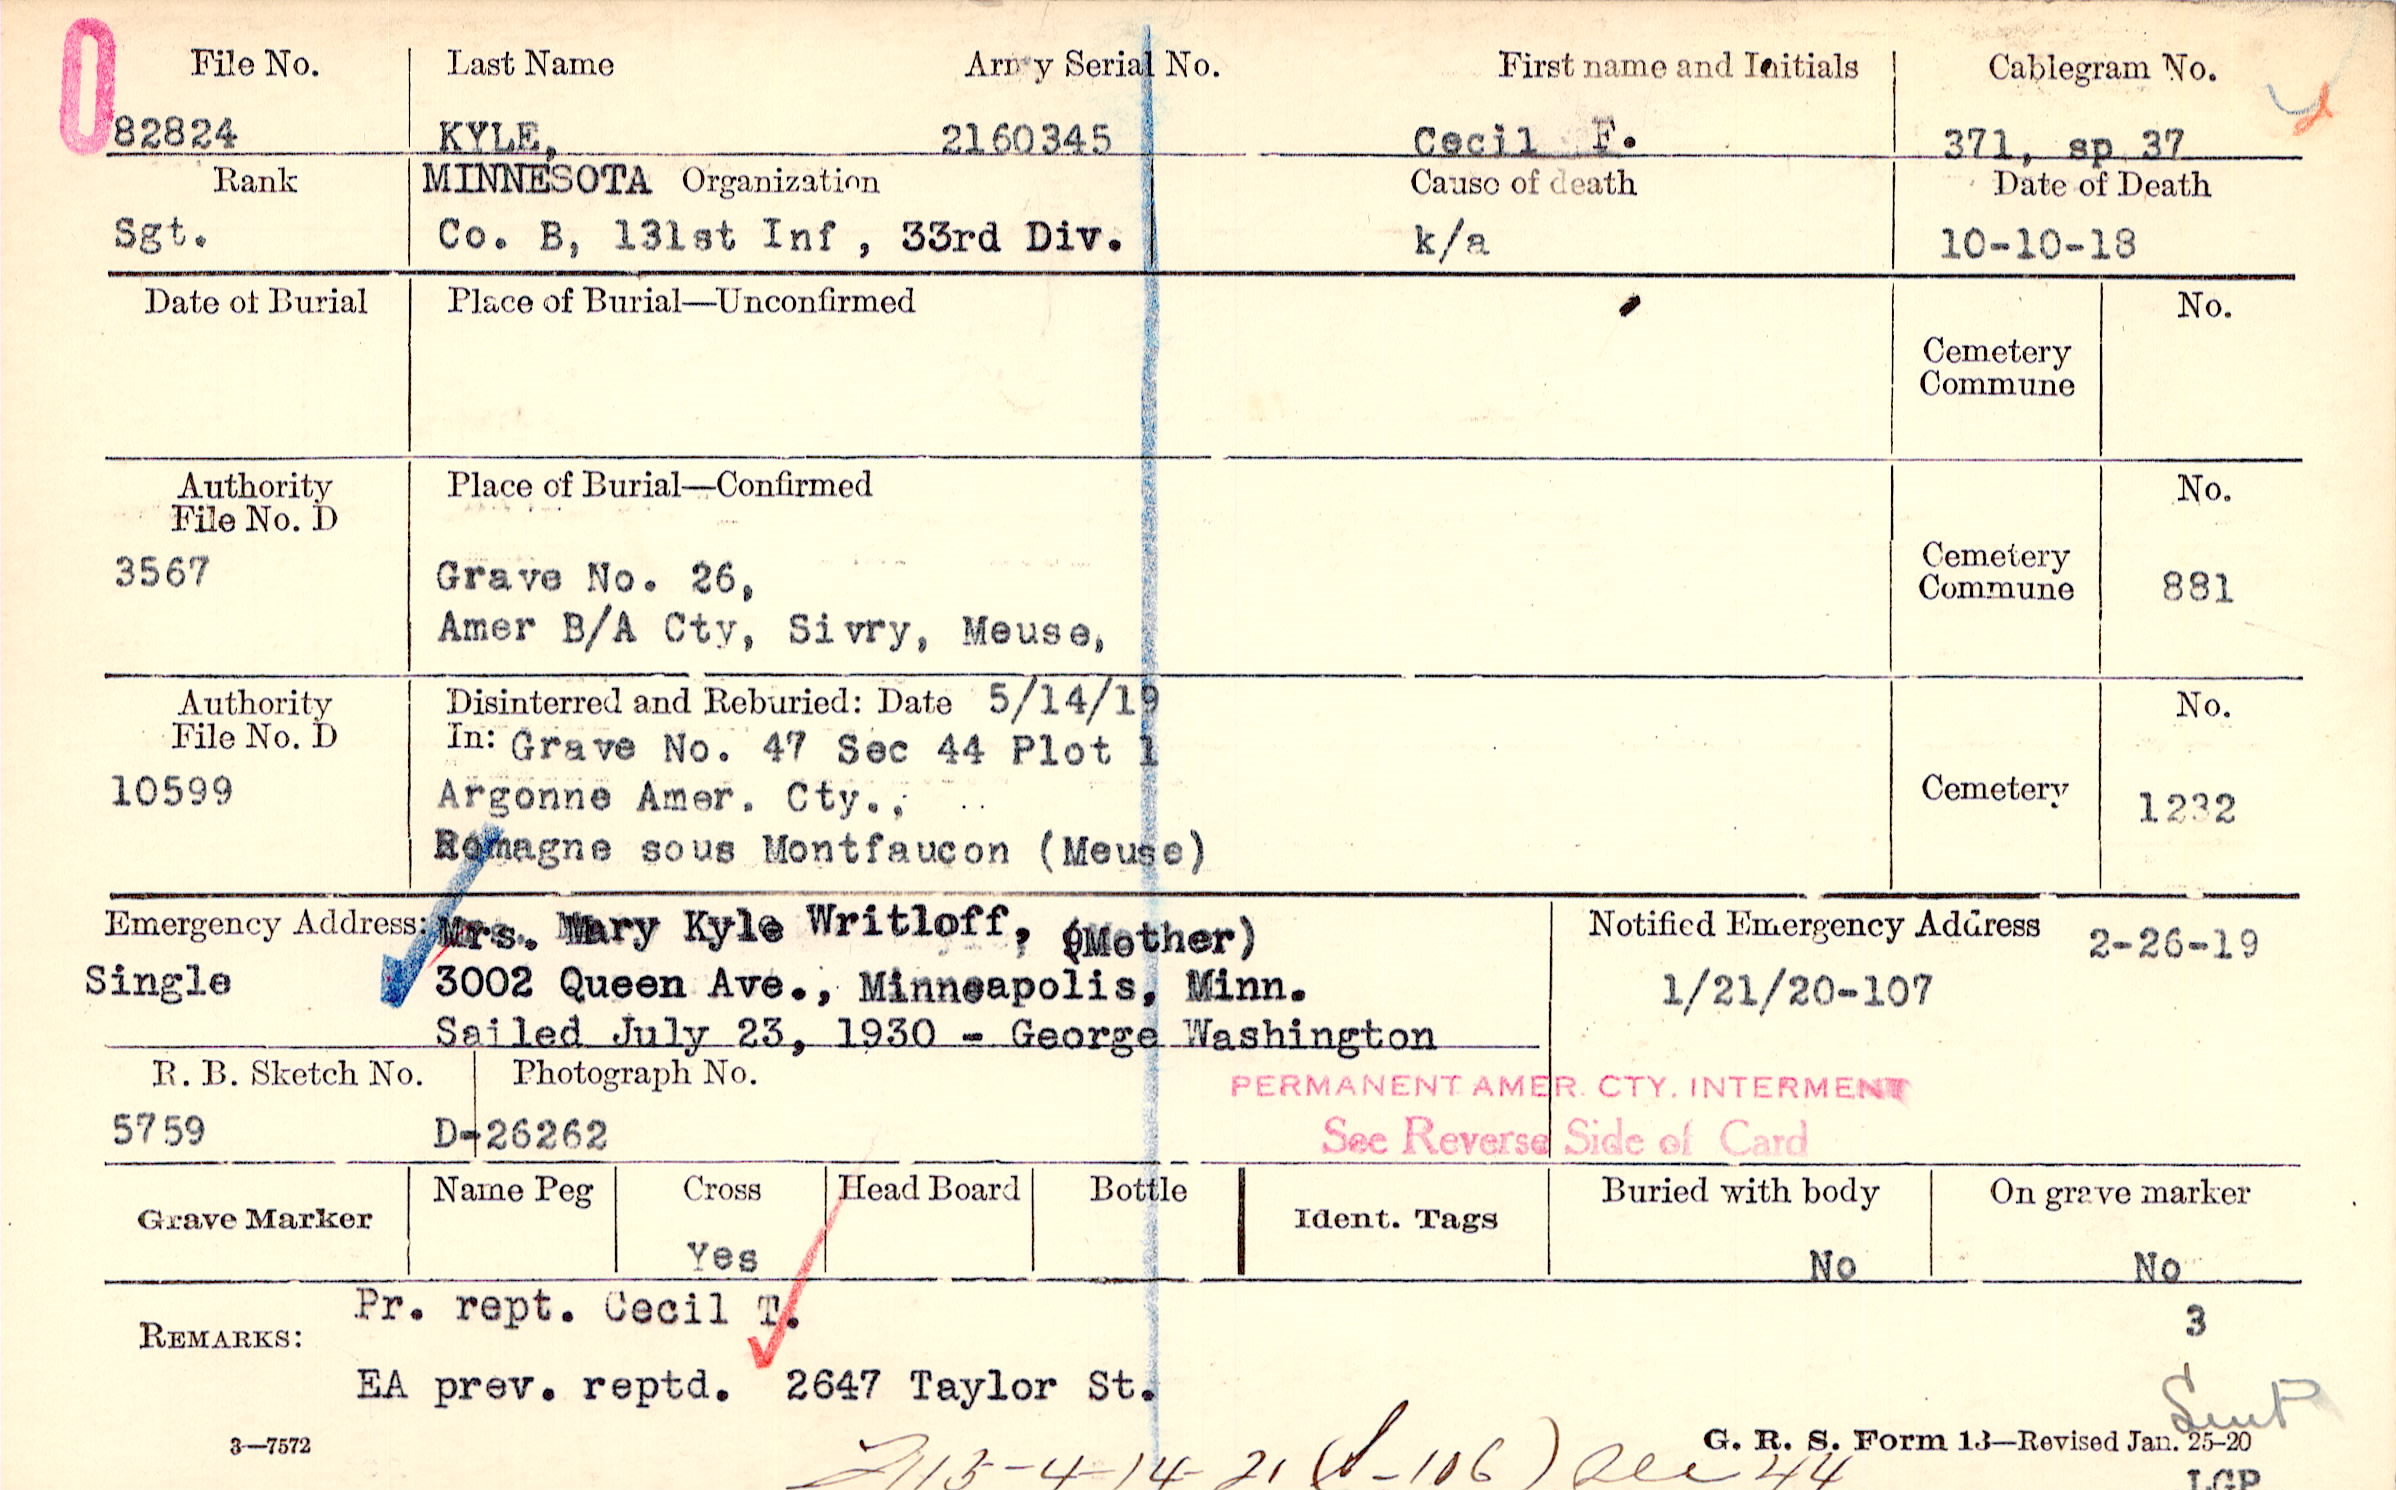 File No. Last Name Army Serial No. First name and Initials Cablegram No.
82824 KYLE, 2160345 Cecil F. 371, sp 37
Rank MINNESOTA Organization Cause of death Date of Death
Sgt. Co. B, 131st Inf, 33rd Div. k/a 10-10-18
Date of Burial Place of Burial—Unconfirmed No.
Cemetery
Commune
Authority Place of Burial—Confirmed No.
File No. D
3567 Grave No. 26, Cemetery
Commune 881
Amer B/A Cty, Sivry, Meuse,
Authority Disinterred and Reburied: Date 5/14/19 No.
File No. D In: Grave No. 47 Sec 44 Plot 1
10599 Argonne Amer. Cty., Cemetery 1232
Romagne sous Montfaucon (Meuse)
Emergency Address: Mrs. Mary Kyle Writloff, (Mother) Notified Emergency Address 2-26-19
Single 3002 Queen Ave., Minneapolis, Minn. 1/21/20-107
Sailed July 23, 1930 - George Washington
R. B. Sketch No. Photograph No. PERMANENT AMER. CTY. INTERMENT
5759 D-26262 See Reverse Side of Card
Grave Marker Name Peg Cross Head Board Bottle Ident. Tags Buried with body On grave marker
Yes No No
Pr. rept. Cecil T. 3
REMARKS:
EA prev. reptd. 2647 Taylor St.
3—7572 G. R. S. Form 13—Revised Jan. 25-20
4-14-21 (S-106) Sec 44 LGP